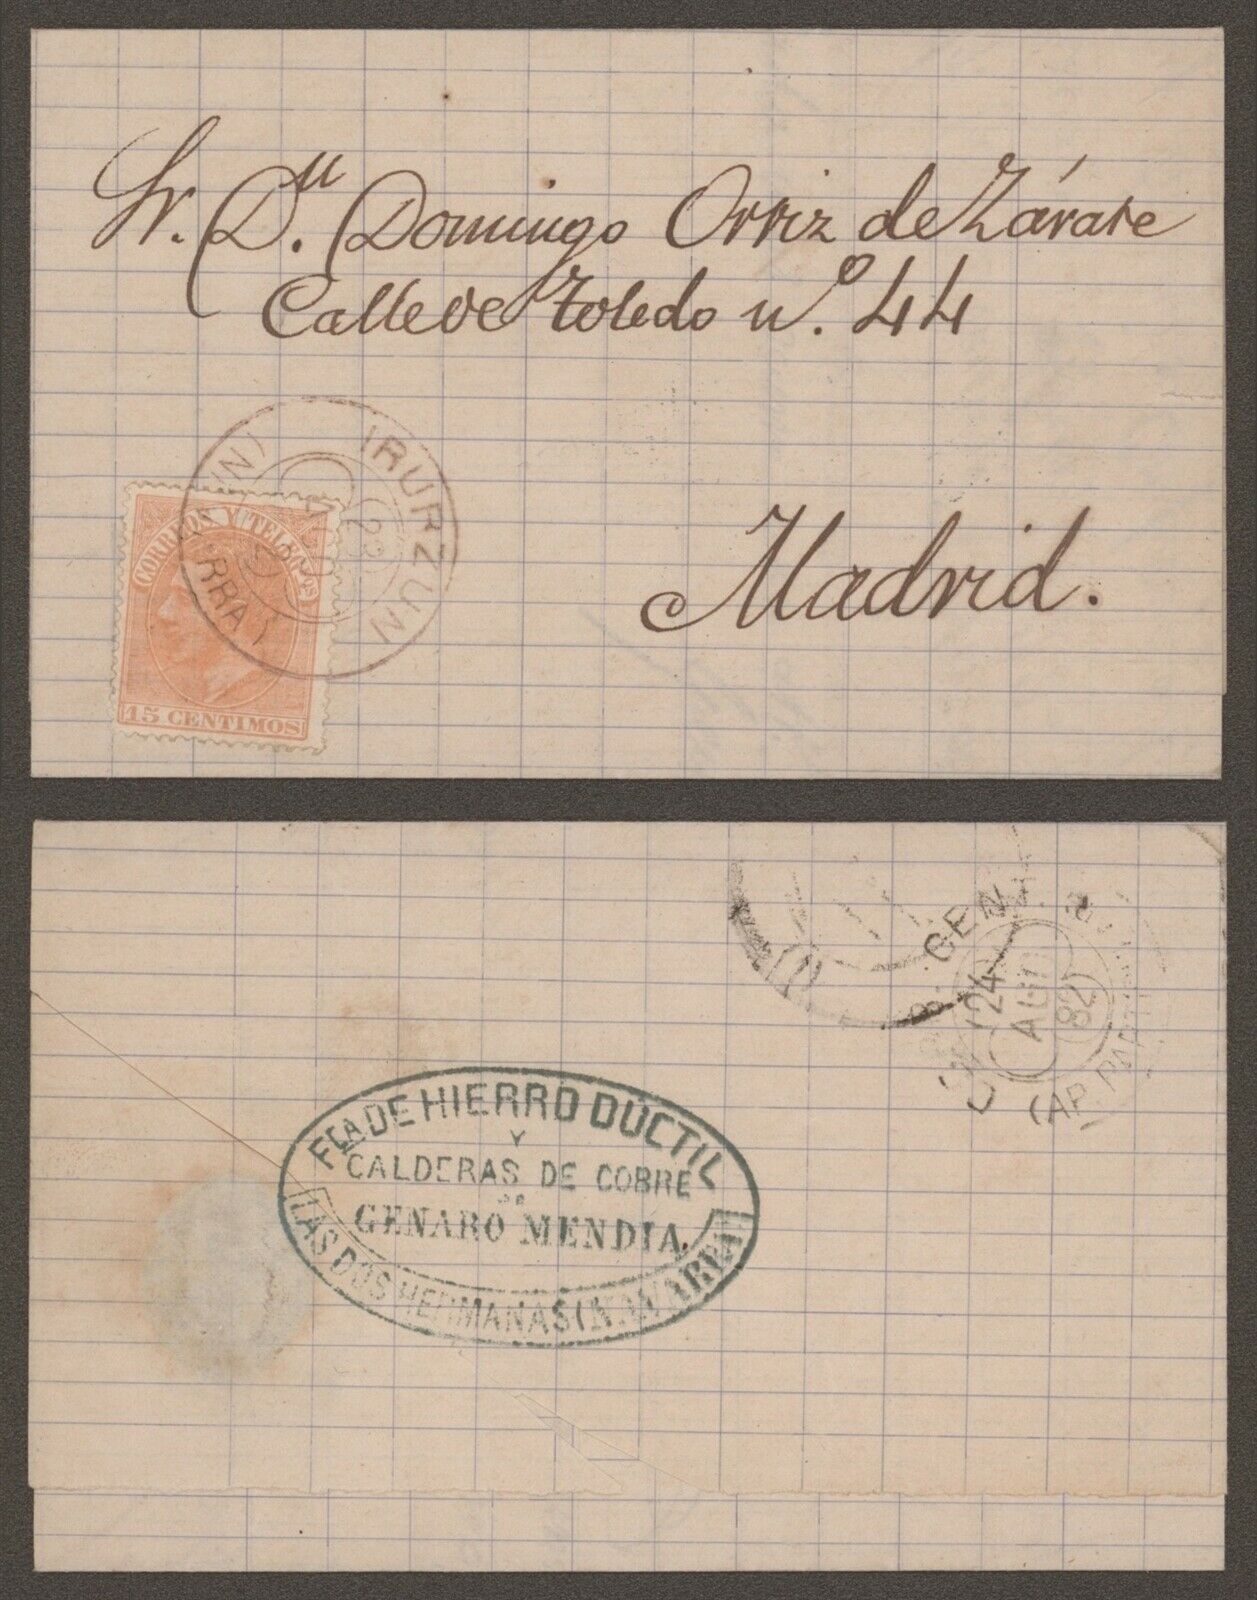 Sr. Dn. Domingo Ortiz de Zárate
Calle de Toledo nº. 44
Madrid.
IRURZUN
23
CORREOS Y TELEGFOS
15 CENTIMOS
24
AGO
82
(AP. PART
FCA DE HIERRO DÚCTIL
Y
CALDERAS DE COBRE
DE
GENARO MENDIA.
LAS DOS HERMANAS (NAVARRA)